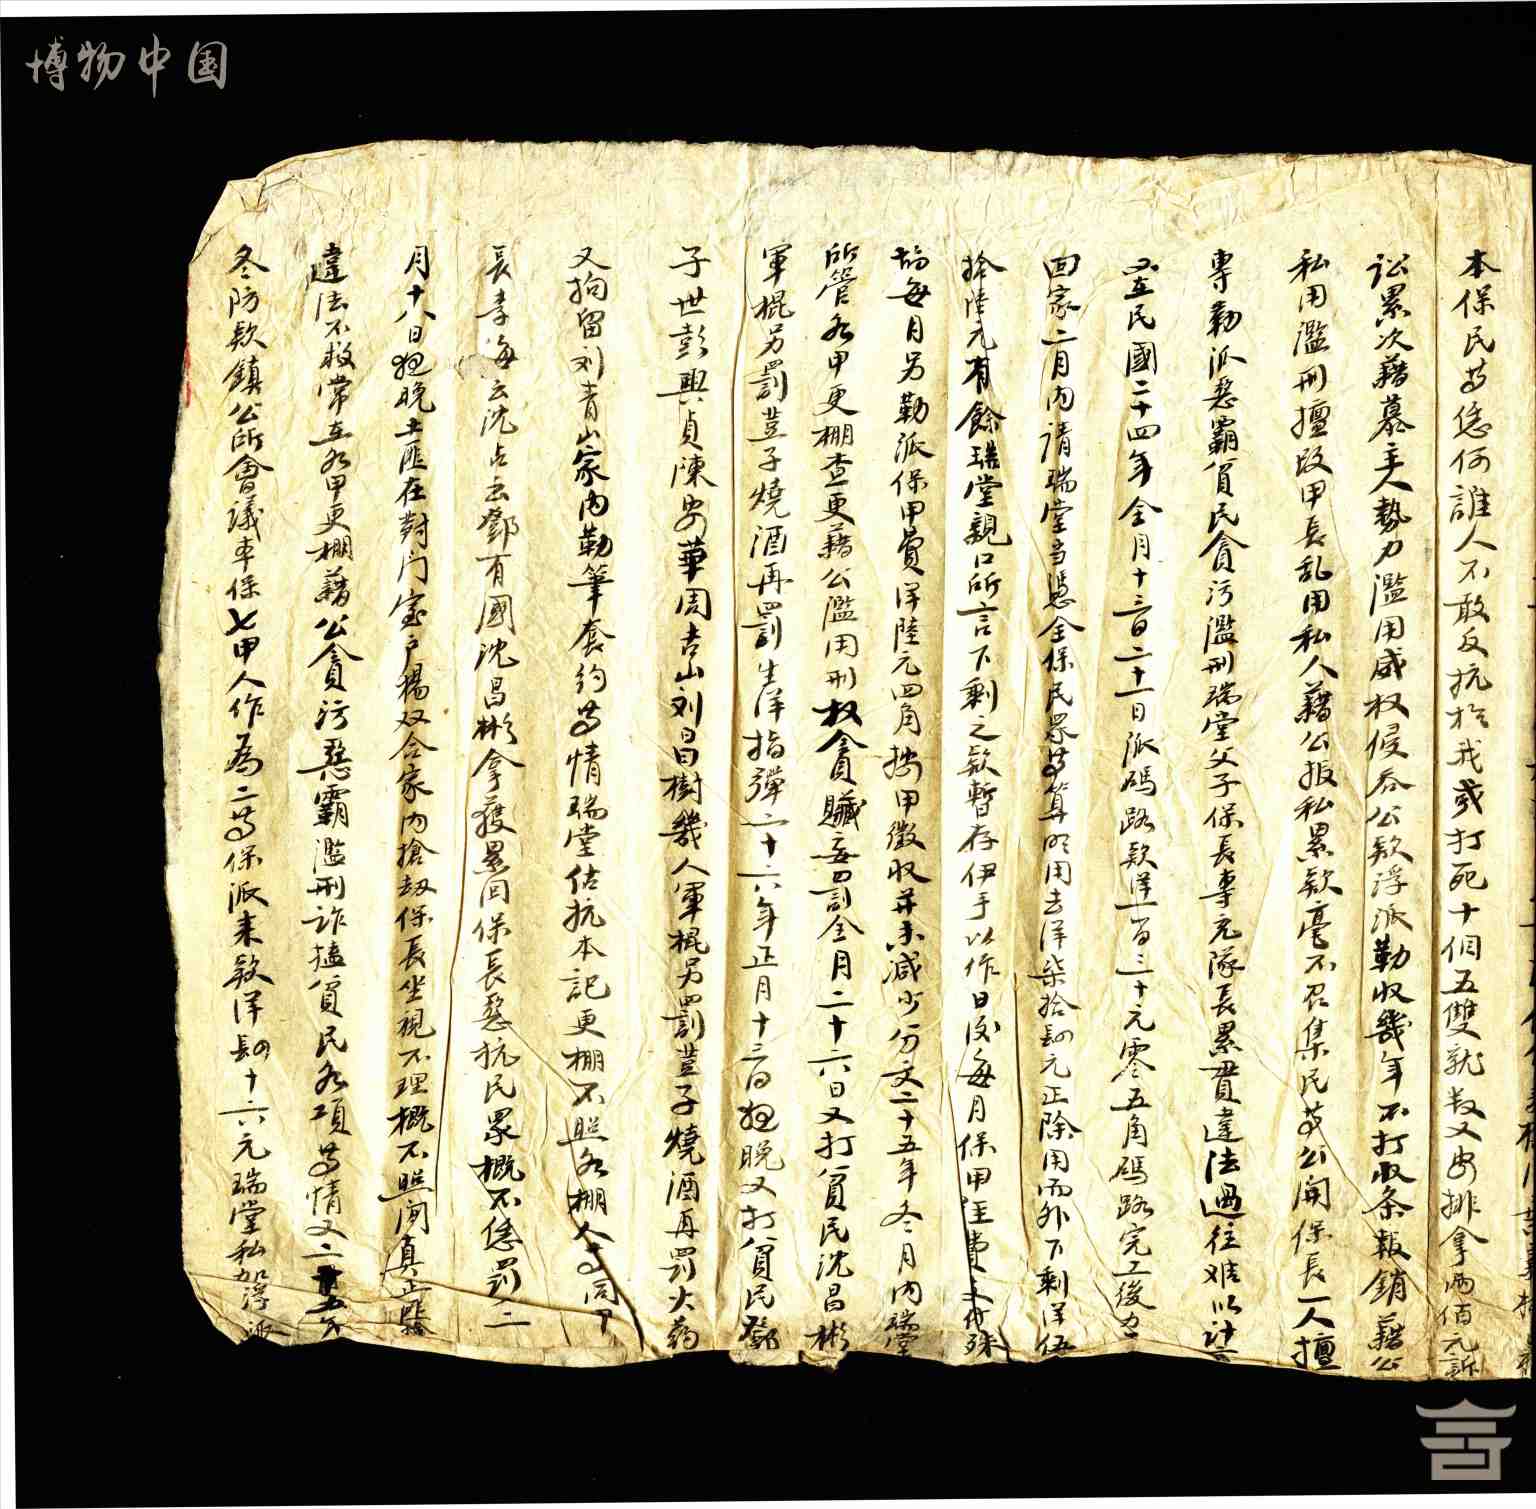 博物中国
本保民等恁何誰人不敢反抗於我或打死十個五雙就收又安排拿兩佰元訴
訟累次藉慕夫勢力濫用威权侵吞公款浮派勒收幾年不打收条報銷藉公
私用濫刑擅改甲長乱用私人藉公报私累款毫不召集民等公開保長一人擅
專勒派惡霸貧民貪污濫刑瑞堂父子保長專充隊長累貫違法過往难以計
又在民國二十四年全月十三日二十一日派碼路款洋一百三十元零五角碼路完工後
回家二月內請瑞堂当憑全保民眾等算明用去洋柒拾元正除用而外下剩洋伍
拾陸元有餘瑞堂親口所言下剩之款暫存伊手以作日後每月保甲
每月另勒派保甲費洋陸元四角按甲徵收并未減少分文二十五年冬月內瑞堂
所管各甲更棚查更藉公濫用刑权貪贓妄罰全月二十六日又打貧民沈昌彬
軍棍另罰荳子燒酒再罰生洋指彈二十六年正月十三日夜晚又打貧民鄧
子世彭興貞陳安華周吉山刘曰樹幾人軍棍另罰荳子燒酒再罰火药
又拘留刘青山家內勒筆套約等情瑞堂估抗本記更棚不照各棚人等同甲
長李海云沈占云鄧有國沈昌彬拿獲累回保長惡抗民眾概不恁罰二
月十八日夜晚土匪在對门室戶楊双合家內搶劫保長坐視不理概不照间真正
違法不救常在各甲更棚藉公貪污惡霸濫刑詐搕貧民各項等情又二十五年
冬防款鎮公所會議本保七甲人作為二等保派来款洋十六元瑞堂私加浮派